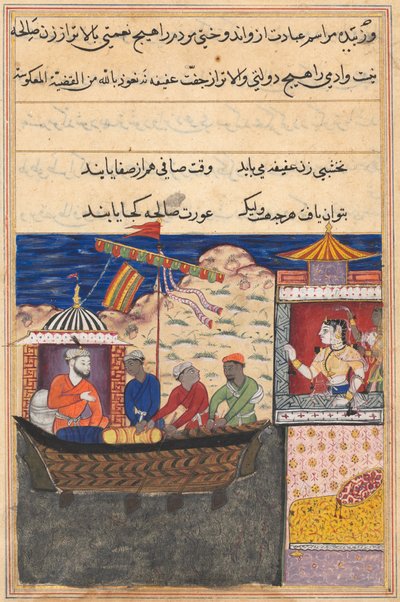 وگزیده مراسم عبادت از واند و ختی مرد را هیچ نعمتی بالاتر از زن صالحه
نیت و ادی را هیچ دولتی والاتر از جفت عفیفه نه نعوذ بالله من القضیة المعکوسة
نخشبی زن عفیفه می باید وقت صافی هم از صفا یابند
بتوان یافت هرچه هست ولیک عورت صالحه کجا یابند